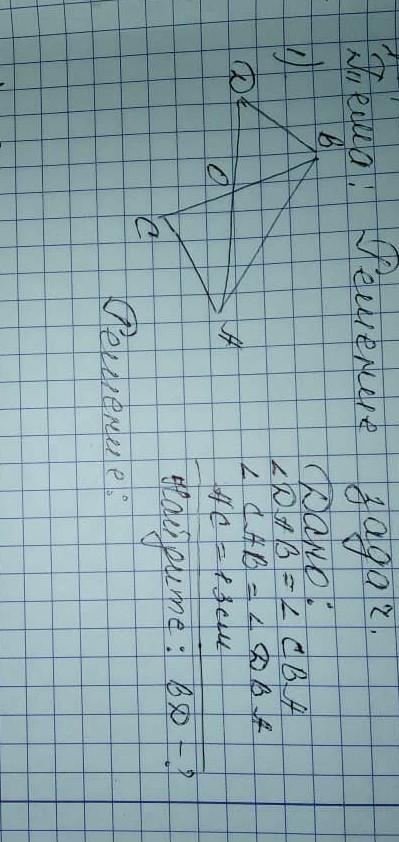 Тема: Решение задач.
1)
B
D
O
C
A
Дано:
∠DAB = ∠CBA
∠CAB = ∠DBA
AC = 13см
Найдите: BD - ?
Решение: